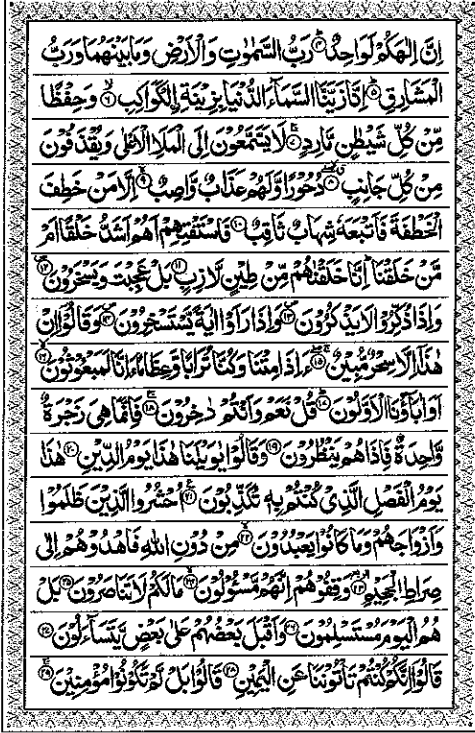 اِنَّ اِلٰهَكُمْ لَوَاحِدٌ ﴿۴﴾ رَبُّ السَّمٰوٰتِ وَالْاَرْضِ وَمَا بَيْنَهُمَا وَرَبُّ
الْمَشَارِقِ ﴿۵﴾ اِنَّا زَيَّنَّا السَّمَآءَ الدُّنْيَا بِزِيْنَةِ اِۨلْكَوَاكِبِ ﴿۶﴾ وَحِفْظًا
مِّنْ كُلِّ شَيْطٰنٍ مَّارِدٍ ﴿۷﴾ لَا يَسَّمَّعُوْنَ اِلَى الْمَلَاِ الْاَعْلٰى وَيُقْذَفُوْنَ
مِنْ كُلِّ جَانِبٍ ﴿۸﴾ دُحُوْرًا وَّلَهُمْ عَذَابٌ وَّاصِبٌ ﴿۹﴾ اِلَّا مَنْ خَطِفَ
الْخَطْفَةَ فَاَتْبَعَهٗ شِهَابٌ ثَاقِبٌ ﴿۱۰﴾ فَاسْتَفْتِهِمْ اَهُمْ اَشَدُّ خَلْقًا اَمْ
مَّنْ خَلَقْنَا ؕ اِنَّا خَلَقْنٰهُمْ مِّنْ طِيْنٍ لَّازِبٍ ﴿۱۱﴾ بَلْ عَجِبْتَ وَيَسْخَرُوْنَ ﴿۱۲﴾
وَاِذَا ذُكِّرُوْا لَا يَذْكُرُوْنَ ﴿۱۳﴾ وَاِذَا رَاَوْا اٰيَةً يَّسْتَسْخِرُوْنَ ﴿۱۴﴾ وَقَالُوْۤا اِنْ
هٰذَاۤ اِلَّا سِحْرٌ مُّبِيْنٌ ﴿۱۵﴾ ءَاِذَا مِتْنَا وَكُنَّا تُرَابًا وَّعِظَامًا ءَاِنَّا لَمَبْعُوْثُوْنَ ﴿۱۶﴾
اَوَاٰبَآؤُنَا الْاَوَّلُوْنَ ﴿۱۷﴾ قُلْ نَعَمْ وَاَنْتُمْ دٰخِرُوْنَ ﴿۱۸﴾ فَاِنَّمَا هِيَ زَجْرَةٌ
وَّاحِدَةٌ فَاِذَا هُمْ يَنْظُرُوْنَ ﴿۱۹﴾ وَقَالُوْا يٰوَيْلَنَا هٰذَا يَوْمُ الدِّيْنِ ﴿۲۰﴾ هٰذَا
يَوْمُ الْفَصْلِ الَّذِيْ كُنْتُمْ بِهٖ تُكَذِّبُوْنَ ﴿۲۱﴾ اُحْشُرُوا الَّذِيْنَ ظَلَمُوْا
وَاَزْوَاجَهُمْ وَمَا كَانُوْا يَعْبُدُوْنَ ﴿۲۲﴾ مِنْ دُوْنِ اللّٰهِ فَاهْدُوْهُمْ اِلٰى
صِرَاطِ الْجَحِيْمِ ﴿۲۳﴾ وَقِفُوْهُمْ اِنَّهُمْ مَّسْـُٔوْلُوْنَ ﴿۲۴﴾ مَا لَكُمْ لَا تَنَاصَرُوْنَ ﴿۲۵﴾ بَلْ
هُمُ الْيَوْمَ مُسْتَسْلِمُوْنَ ﴿۲۶﴾ وَاَقْبَلَ بَعْضُهُمْ عَلٰى بَعْضٍ يَّتَسَآءَلُوْنَ ﴿۲۷﴾
قَالُوْۤا اِنَّكُمْ كُنْتُمْ تَاْتُوْنَنَا عَنِ الْيَمِيْنِ ﴿۲۸﴾ قَالُوْا بَلْ لَّمْ تَكُوْنُوْا مُؤْمِنِيْنَ ﴿۲۹﴾